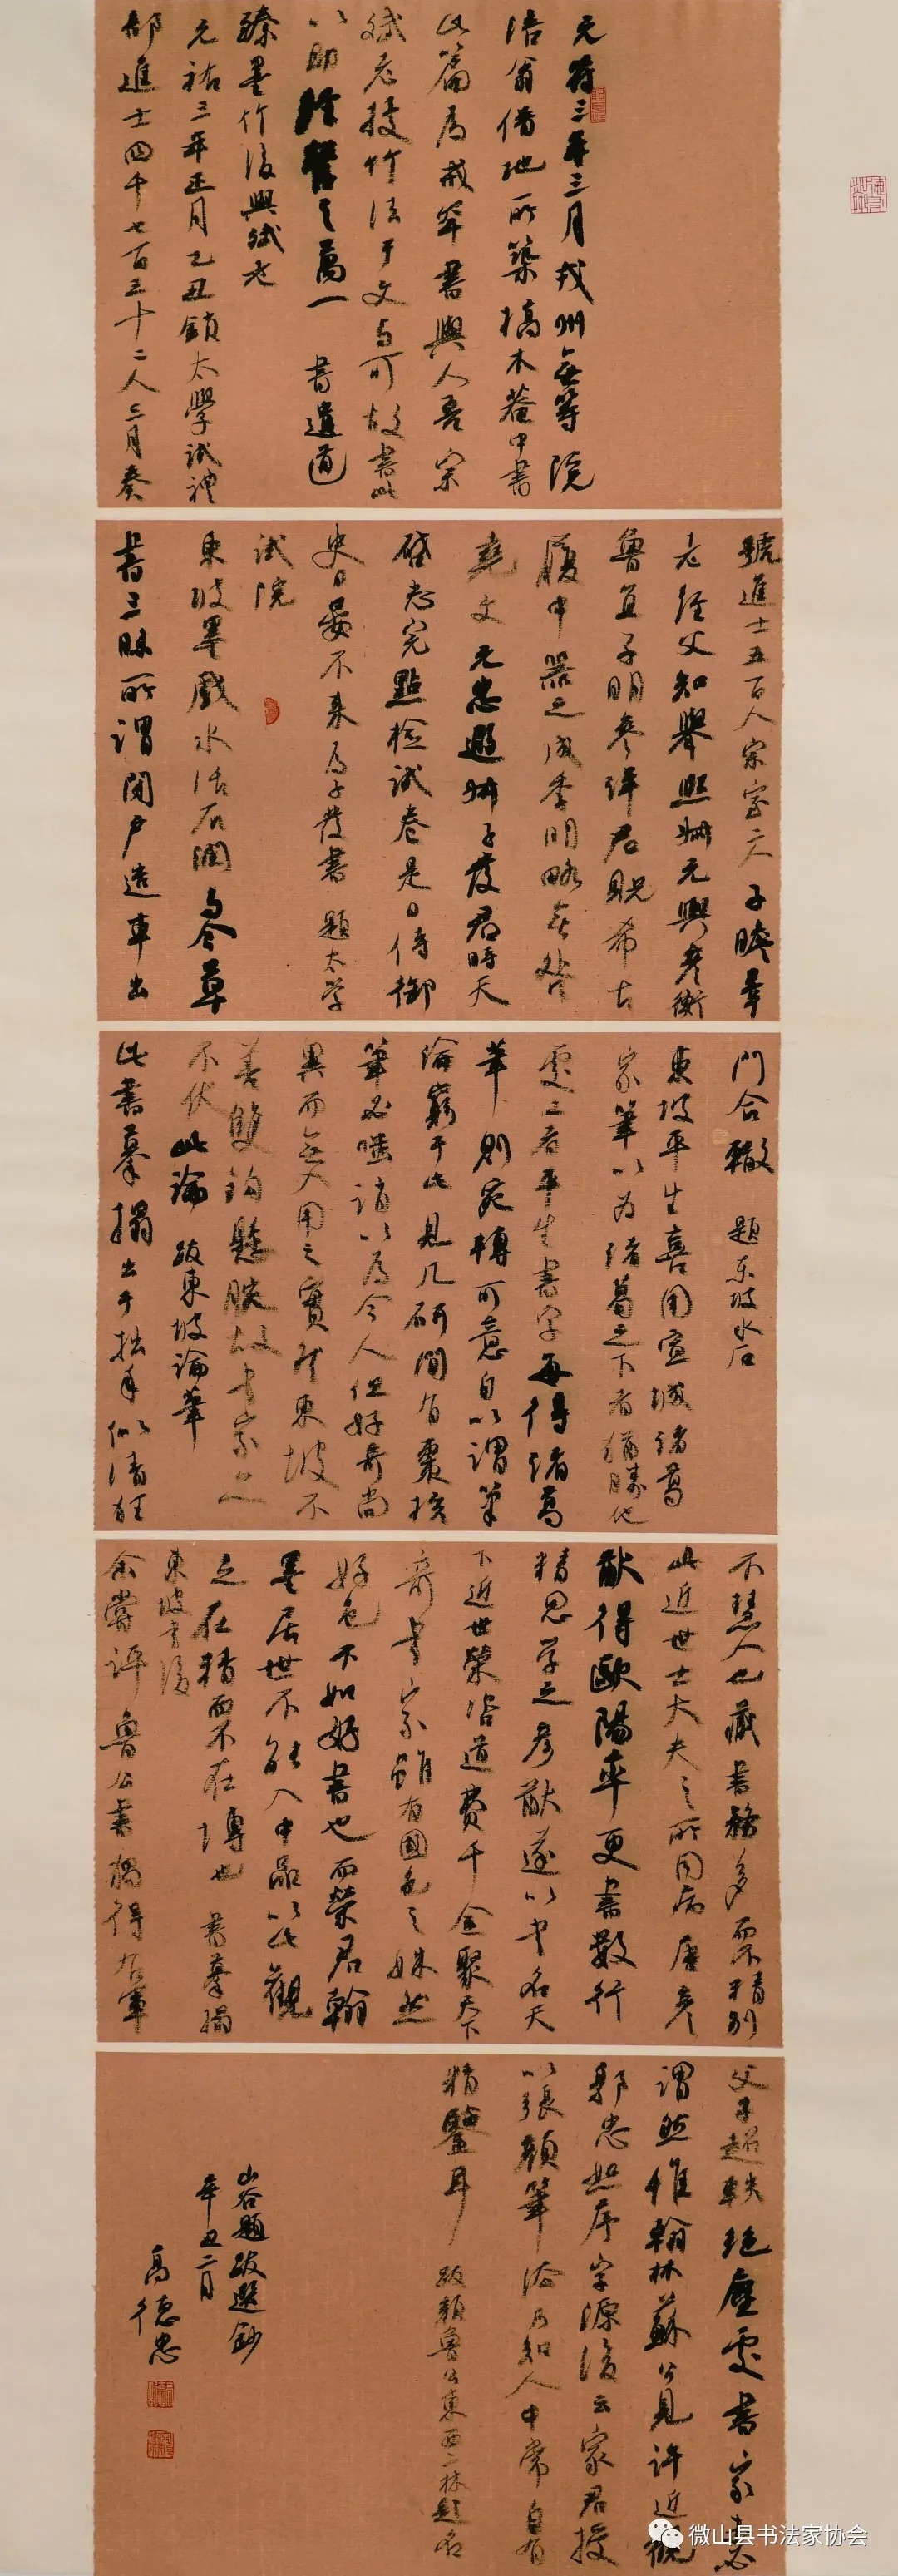 元符三年三月戎州無等院
涪翁借地所築槁木菴中書
此篇為戒年書與人吾宗
斌老投竹法于文与可故書此
以助之萬一 書遺道
臻墨竹後與斌老
元祐三年正月乙丑鎖太學試禮
部進士四千七百三十二人三月奏
號進士五百人宗室二人子瞻莘
老經父知舉熙叔元輿彥衡
魯直子明參詳君貺希古
履中器之成季明略無咎
堯文元忠遐叔子發君時天
啓志完點檢試卷是日侍御
史日晏不来為子發書 題太学
試院
東坡墨戲水活石潤与今草
書三昧所謂閉戶造車出
門合轍 題東坡水石
東坡平生喜用宣城諸葛
家筆以為諸葛之下者猶勝他
處工者平生書字每得諸葛
筆則宛轉可意自以謂筆
論窮于此見几研間有棗核
筆必嗤誚以為今人但好奇尚
異而無入用之實然東坡不
善雙鈎懸腕故書家亦
不伏此論 跋東坡論筆
此書摹搨出于拙手似清狂
不慧人也藏書務多而不精別
此近世士大夫之所同病唐彥
猷得歐陽率更書數行
精思学之彥猷遂以書名天
下近世榮咨道費千金聚天下
奇書家雖有國色之姝然
好色不如好書也而榮君翰
墨居世不能入中品以此觀
之在精而不在博也 書摹搨
東坡書後
余嘗評魯公書獨得右軍
父子超軼絕塵處書家未必
謂然惟翰林蘇公見許近觀
郭忠恕序字源後云家君授
以張顏筆法乃知人中常自有
精鑒耳 跋顏魯公東西二林題名
山谷題跋選鈔
辛丑二月
高德忠
微山县书法家协会